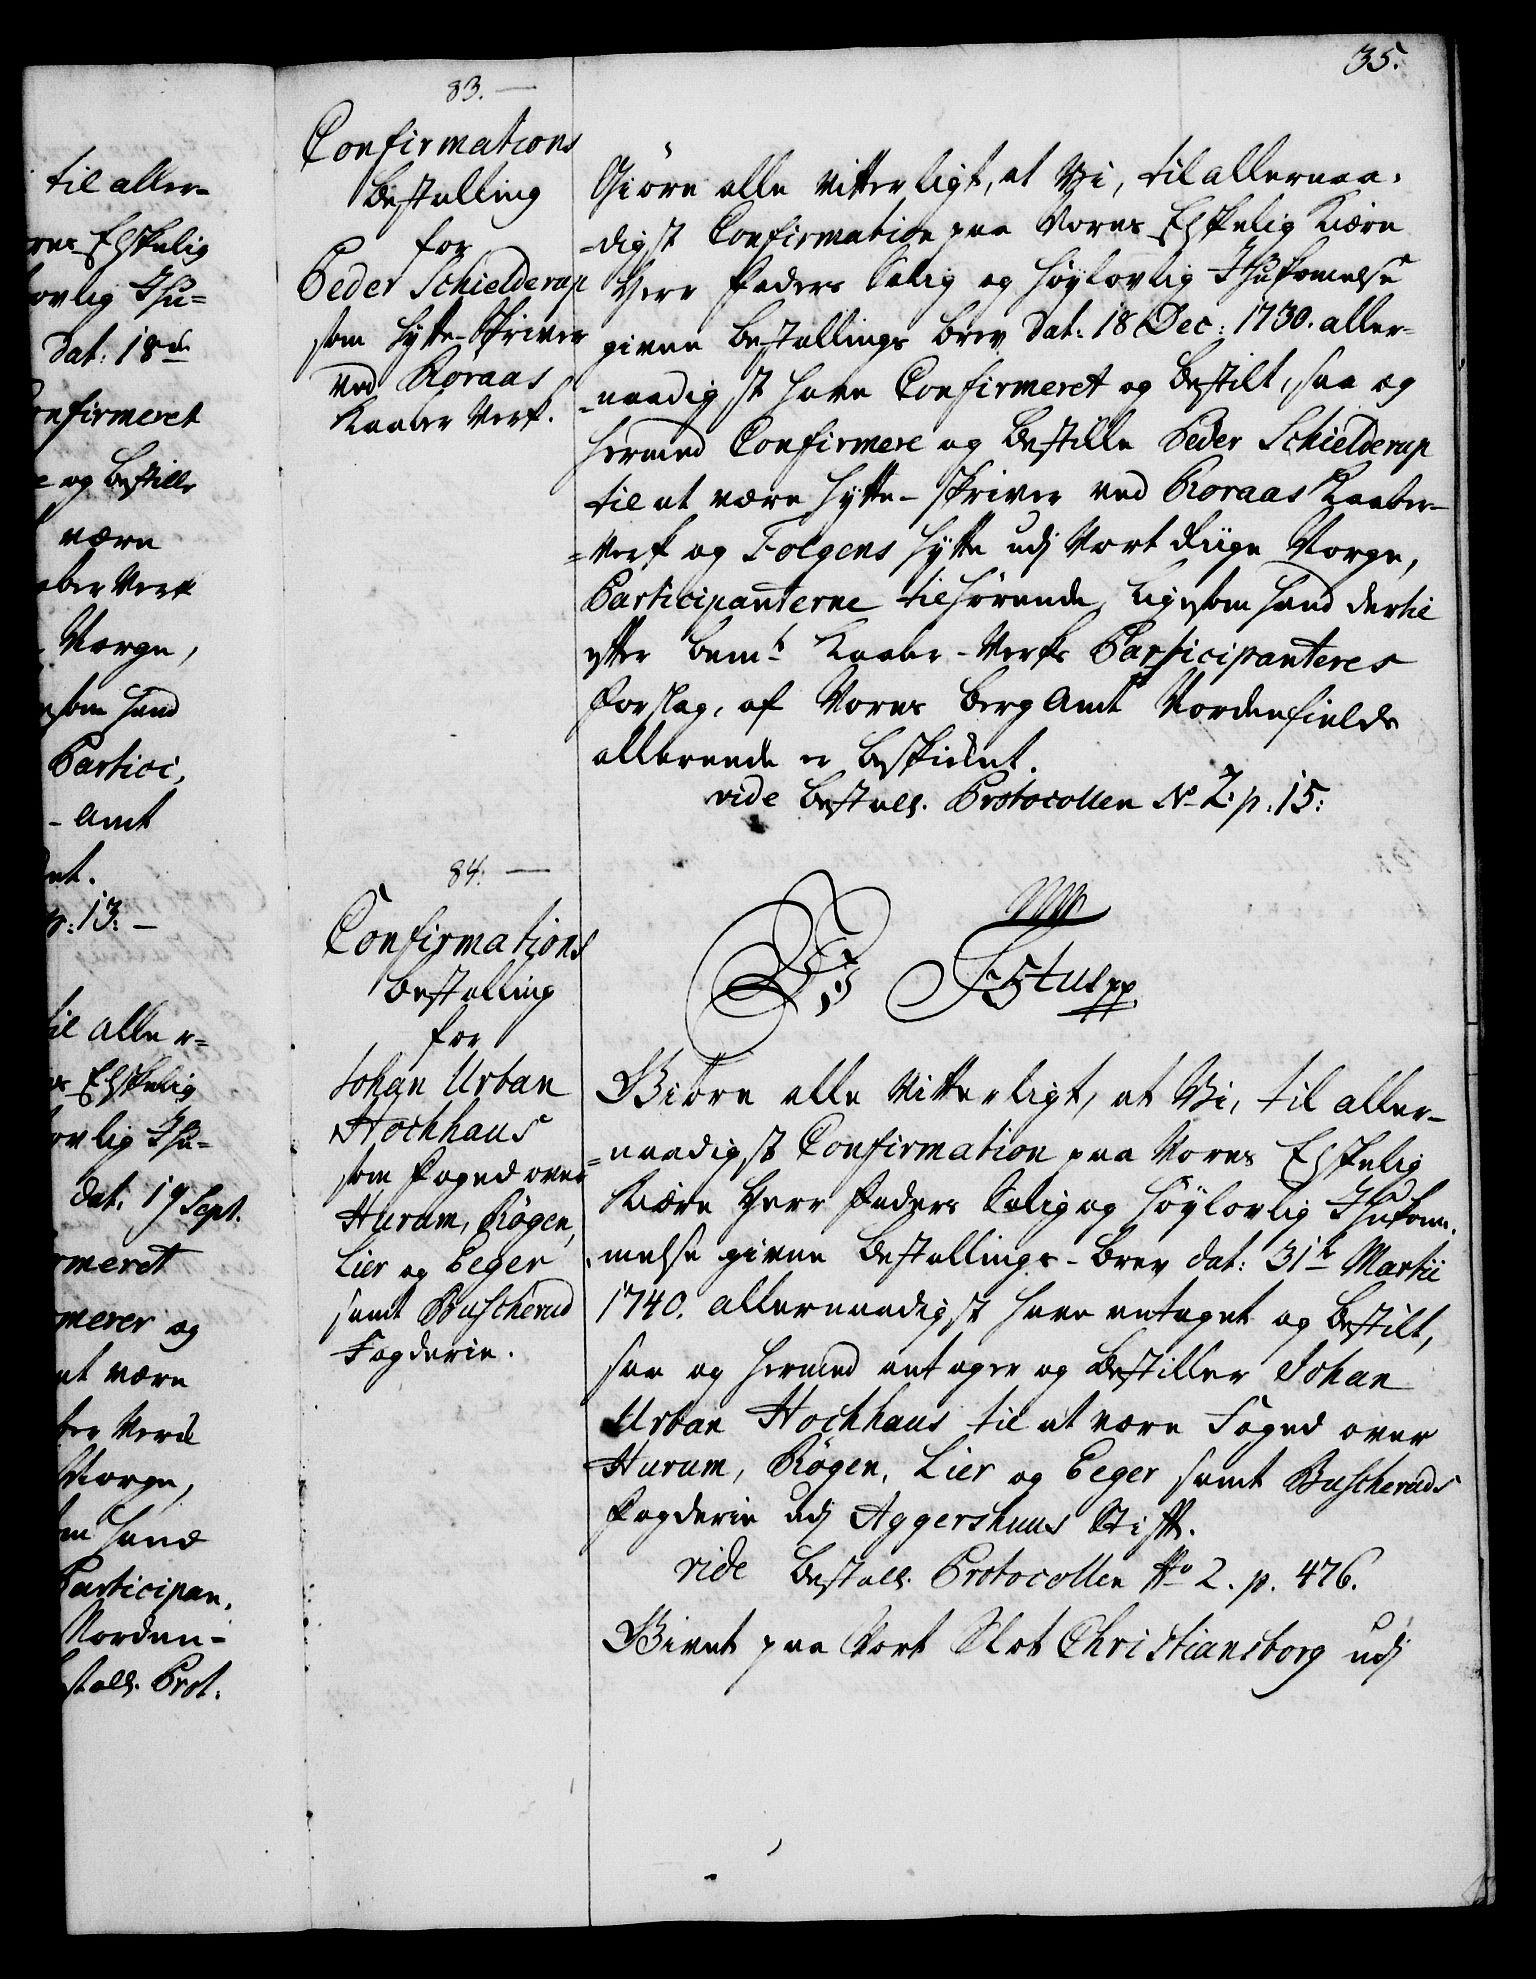 35.
til aller-
Elskelig
lovlig Ihu-
dat: 18de
Confirmeret
og bestille
være
Kaaber Verk
Norge,
som hand
Partici,
- Amt
p: 13: -
til aller-
Elskelig
lovlig Ihu-
dat: 19 Sept.
og
at være
Norge,
hand
Participan,
Norden-
Prot:
83. -
Confirmations
Bestalling
for
Peder Schielderup
som Hytte-Skriver
ved Roraas
Kaaber Verk.
Giöre alle vitterligt, at Vi, til allernaa-
-digst Confirmation paa Vores Elskelig Kiære
Herr Faders Salig og Høylovlig Ihukomelse
givne Bestallings Brev dat: 18 Dec: 1730. aller-
-naadigst have Confirmeret og bestilt, saa og
hermed Confirmere og bestille Peder Schielderup
til at være Hytte-Skriver ved Roraas Kaaber-
-Verk og Folgens Hytte udj Vort Riige Norge,
Participanterne tilhørende, ligesom hand dertil
efter bemt Kaaber-Verks Participanteres
Forslag, af Vores Berg Amt Nordenfields
allerede er beskicket.
vide Bestall. Protocollen No 2. p. 15:
84. -
Confirmations
Bestalling
for
Johan Urban
Hochhaus
som Foged over
Hurum, Rögen,
Lier og Eeger
samt Buscherud
Fogderie.
Vj F5tus pp
Giöre alle Vitterligt, at Vi, til aller-
-naadigst Confirmation paa Vores Elskelig
Kiære Herr Faders Salig og Høylovlig Ihukom-
-melse givne Bestallings-Brev dat: 31te Martii
1740. allernaadigst have antaget og bestilt,
saa og hermed antager og bestiller Johan
Urban Hochhaus til at være Foged over
Hurum, Rögen, Lier og Eeger samt Buscheruds
Fogderie udj Aggershuus Stift.
vide Bestall. Protocollen No 2. p. 476.
Givet paa Vort Slot Christiansborg udj